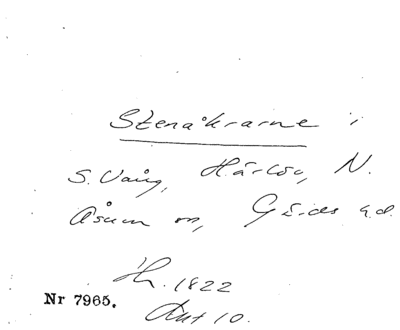 Stenåkrarne i
S. Vång, Härlöv, N.
Åsum sn, Gärds hd.
1822
Akt 10.
Nr 7965.